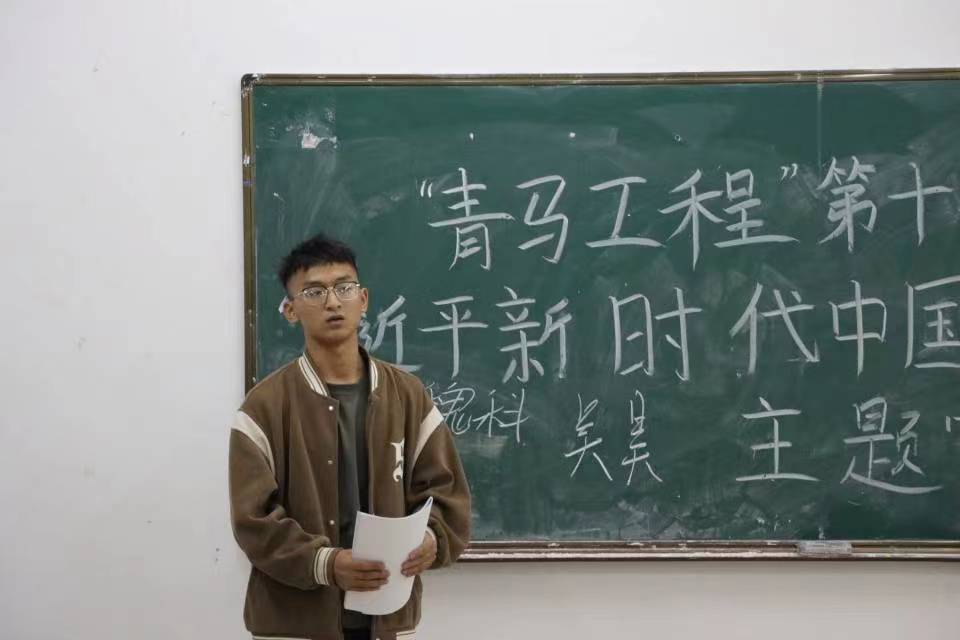 “青马工程”第十
近平新时代中国
魏科 吴昊 主题